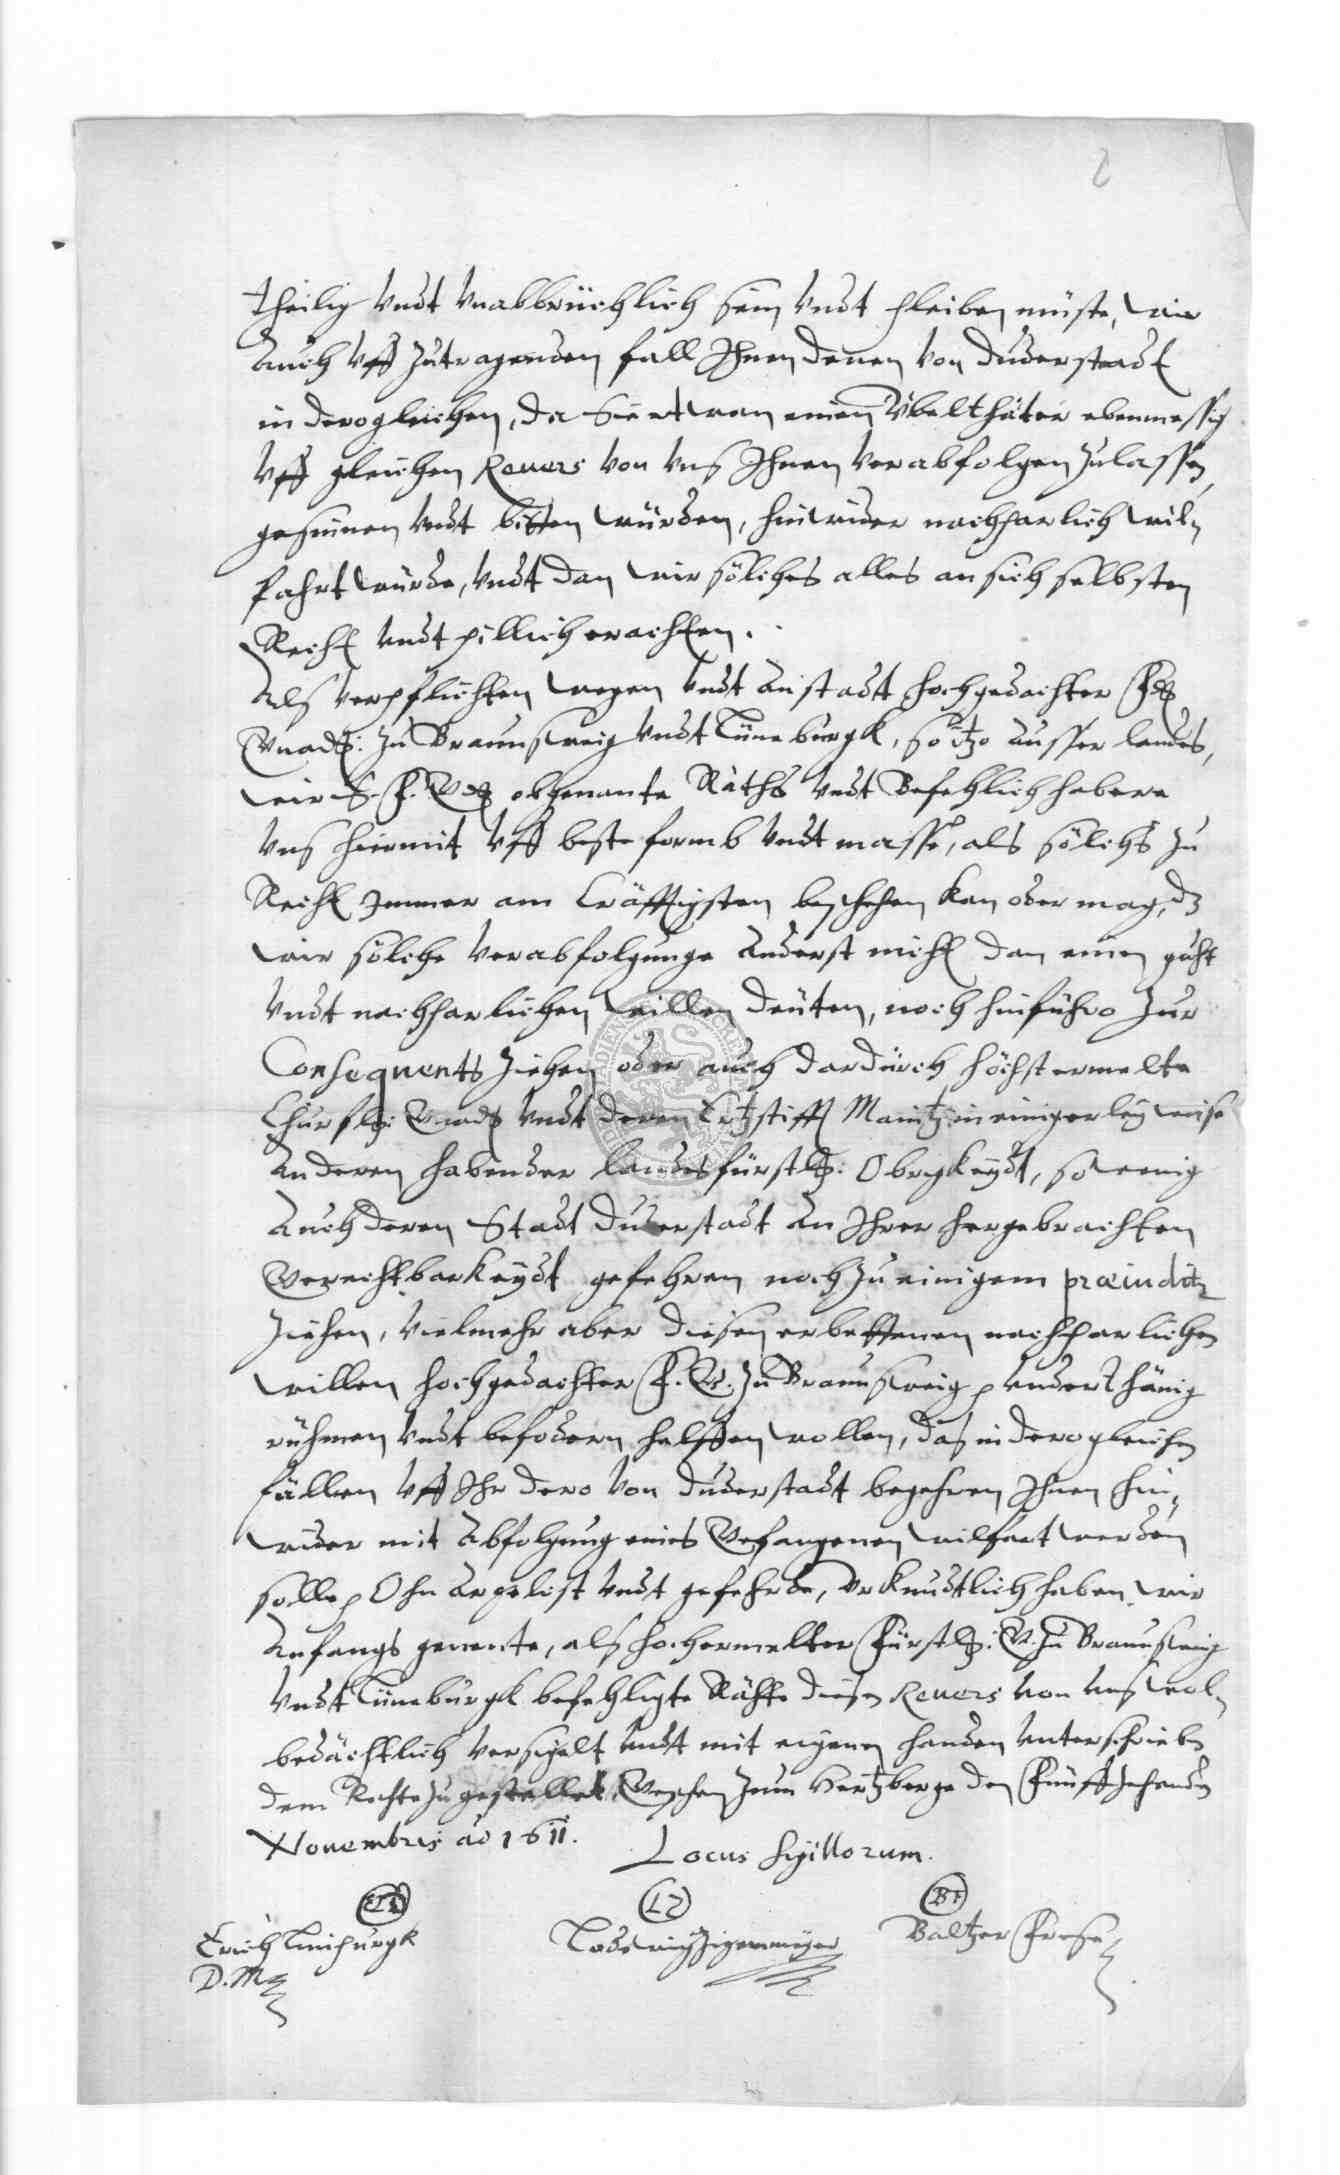 2
theilig vndt vnabbrüchlich sein vndt pleiben müste, wie
auch vff zutragenden fall Ihnen denen von Duderstadt
in dergleichen, da sie etwan einen Übelthäter ebenmessig
vff gleichen Revers von vns Ihnen verabfolgen zulassen
gesinnen vndt bitten würden, hinwider nachparlich wil¬
fahrt würde, vndt dan wir sölches alles an sich selbsten
Recht vndt pillich erachten.
Als verpflichten wegen vndt anstadt hochgedachter
Gnadt: zu Braunsweig vndt Lüneburgk, so itzo ausser landes,
wir S. F. G. obgenante Räthe vndt Befehlichhabere
vns hiermit vff beste formb vndt masse, als sölchs zu
Recht immer am kräfftigsten beschehen kan oder mag, dz
wir sölche verabfolgunge anderst nicht dan einen guht
vndt nachparlichen willen deuten, noch hinführo zur
Consequents ziehen oder auch dardurch höchstermelte
Churfl: Gnad vndt deren Ertzstifft Maintz in einigerley weise
an deren habender landesfürstl: Obrigkeydt, so wenig
auch deren Stadt Duderstadt an Ihrer hergebrachten
Gerechtbarkeydt gefehren noch zu einigem præiuditz
ziehen, vielmehr aber diesen erbettenen nachparlichen
willen hochgedachter F. G. zu Braunsweig vnderthänig
rühmen vndt befodern helffen wollen, das in dero gleichen
fällen vff Ihr dero von Duderstadt begehren Ihnen hin¬
wider mit abfolgung eines Gefangenen wilfart werden
solle Ohn argelist vndt gefehrde, Urkundtlich haben wir
Anfangs genente, als hochermelter Fürstl: G. zu Braunsweig
vndt Lüneburgk befehligte Räthe diesen Revers von vns wol¬
bedächtlich versigelt vndt mit eigenen handen unterschrieben
dem Rathe zugestellet, Geschehen zum Hertzberge den Funffzehenden
Novembris ao 1611.
Locus Sigillorum.
LZ
BF
Erich
D. M
Lodewig Zigenmeyer
Baltzer Frese